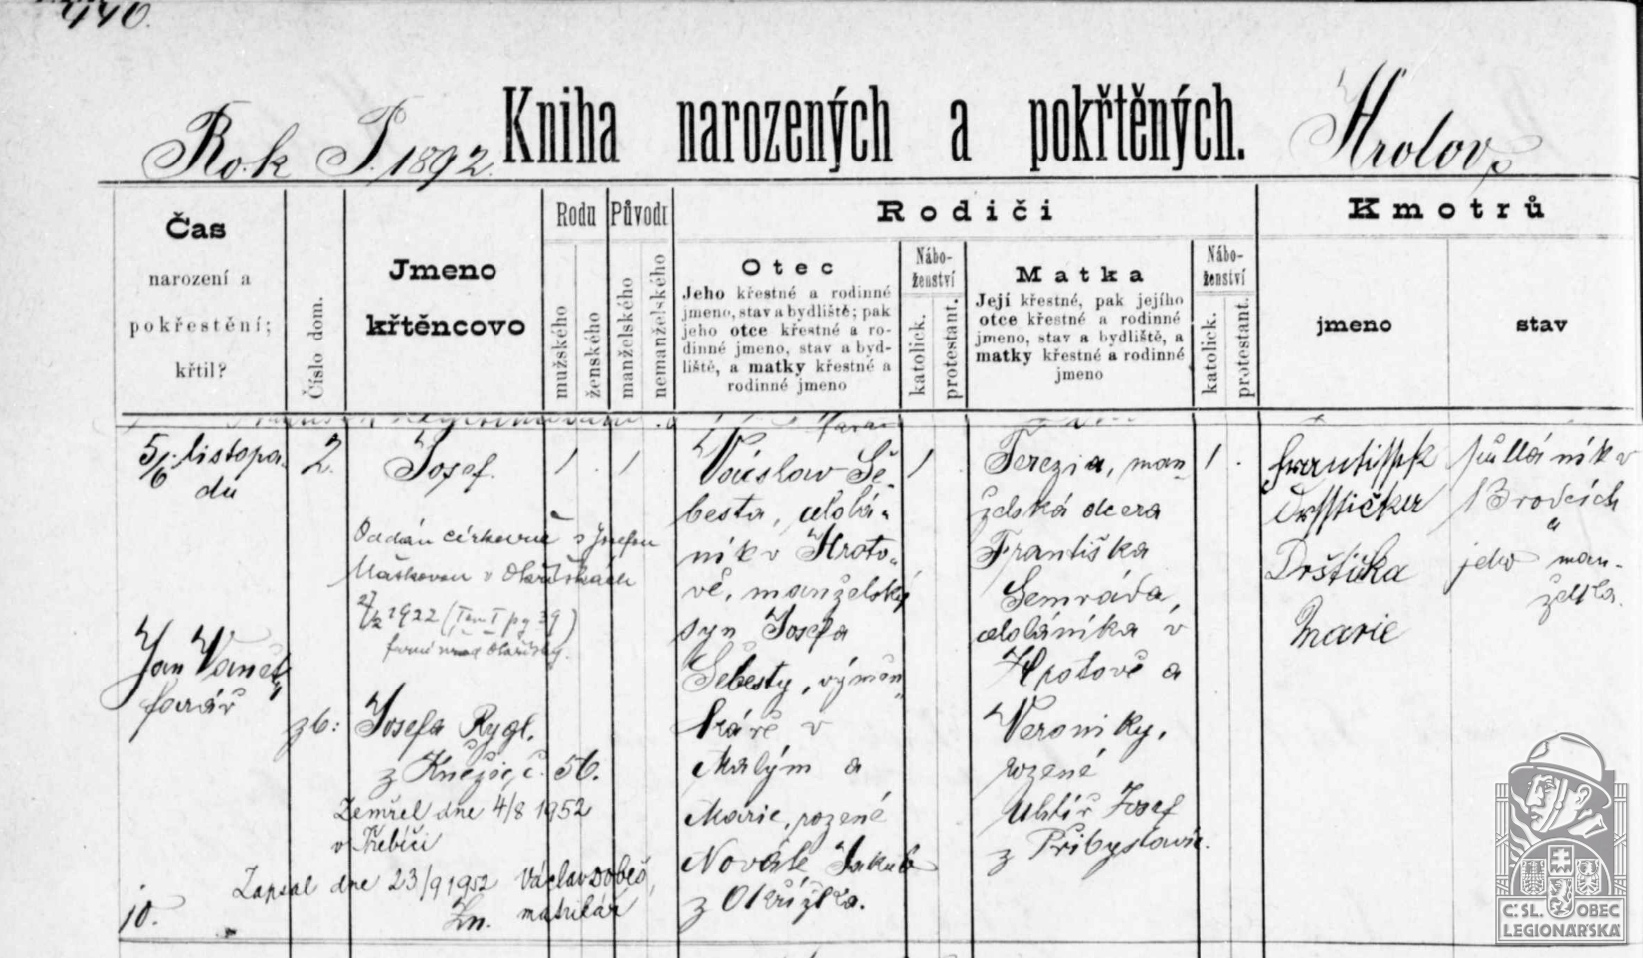 440.
Rok P. 1892. Kniha narozených a pokřtěných. Hrotov
Čas
narození a
pokřestění;
křtil?
Číslo dom.
Jmeno
křtěncovo
Rodu
mužského
ženského
Původu
manželského
nemanželského
Rodiči
Otec
Jeho křestné a rodinné
jmeno, stav a bydliště; pak
jeho otce křestné a ro-
dinné jmeno, stav a byd-
liště, a matky křestné a
rodinné jmeno
Nábo-
ženství
katolick.
protestant.
Matka
Její křestné, pak jejího
otce křestné a rodinné
jmeno, stav a bydliště, a
matky křestné a rodinné
jmeno
Nábo-
ženství
katolick.
protestant.
Kmotrů
jmeno
stav
5/6. listopa-
du
Jan
farář
10.
2.
Josef.
Oddán církevně s Josefou
v Okříškách
1922 (Tom I pag 39)
zb: Josefa Rygl,
z Kněžic, č. 56.
Zemřel dne 4/8 1952
v Třebíči
Zapsal dne 23/9 1952 Václav Dobeš,
matrikář
1. 1
Václav Še-
besta,
ník v Hroto-
vě, manželský
syn Josefa
Šebesty, výměn-
káře v
Malým a
Marie, rozené
Novák Jakub
z Okřížka.
1
Terezia, man-
želská dcera
Františka
Semráda,
v
Hrotově a
Veroniky,
rozené
Uhlíř Josef
z Přibyslavic.
1.
František
Drštička
Marie
v
Brodcích
a
jeho man-
želka.
ČSL. OBEC
LEGIONÁŘSKÁ